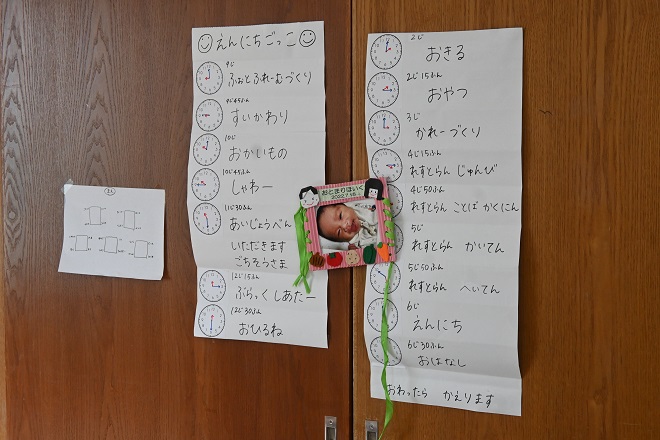 えんにちごっこ
9じ
ふぉとふれーむづくり
9じ45ふん
すいかわり
10じ
おかいもの
10じ45ふん
しゃわー
11じ30ふん
あいじょうべん
いただきます
ごちそうさま
12じ15ふん
ぶらっくしあたー
12じ30ふん
おひるね
おとまりほいく
2じ
おきる
2じ15ふん
おやつ
3じ
かれーづくり
4じ15ふん
れすとらん じゅんび
4じ50ふん
れすとらん ことば かくにん
5じ
れすとらん かいてん
5じ50ふん
れすとらん へいてん
6じ
えんにち
6じ30ふん
おはなし
おわったら かえります